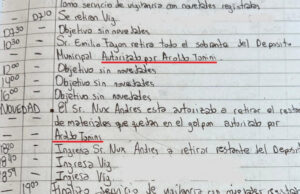 Tomo servicio de vigilancia con novedades registradas
- 0710 - Se retiran Vig.
0730 - Objetivo sin novedades
1030 - Sr. Emilio Fayon retira todo el sobrante del Deposito
Municipal Autorizado por Aroldo Tonini.
1200 - Objetivo sin novedades
1400 - Objetivo sin novedades
1600 - Objetivo sin novedades
NOVEDAD. El Sr. Nux Andres esta autorizado a retirar el resto
de materiales que quedan en el galpon autorizado por
Aroldo Tonini
- Ingresa Sr. Nux Andres a retirar restante del Deposito
- Ingresa Vig
1859 - Ingresa Vig
- 1900 Finalizo Servicio de vigilancia con novedades